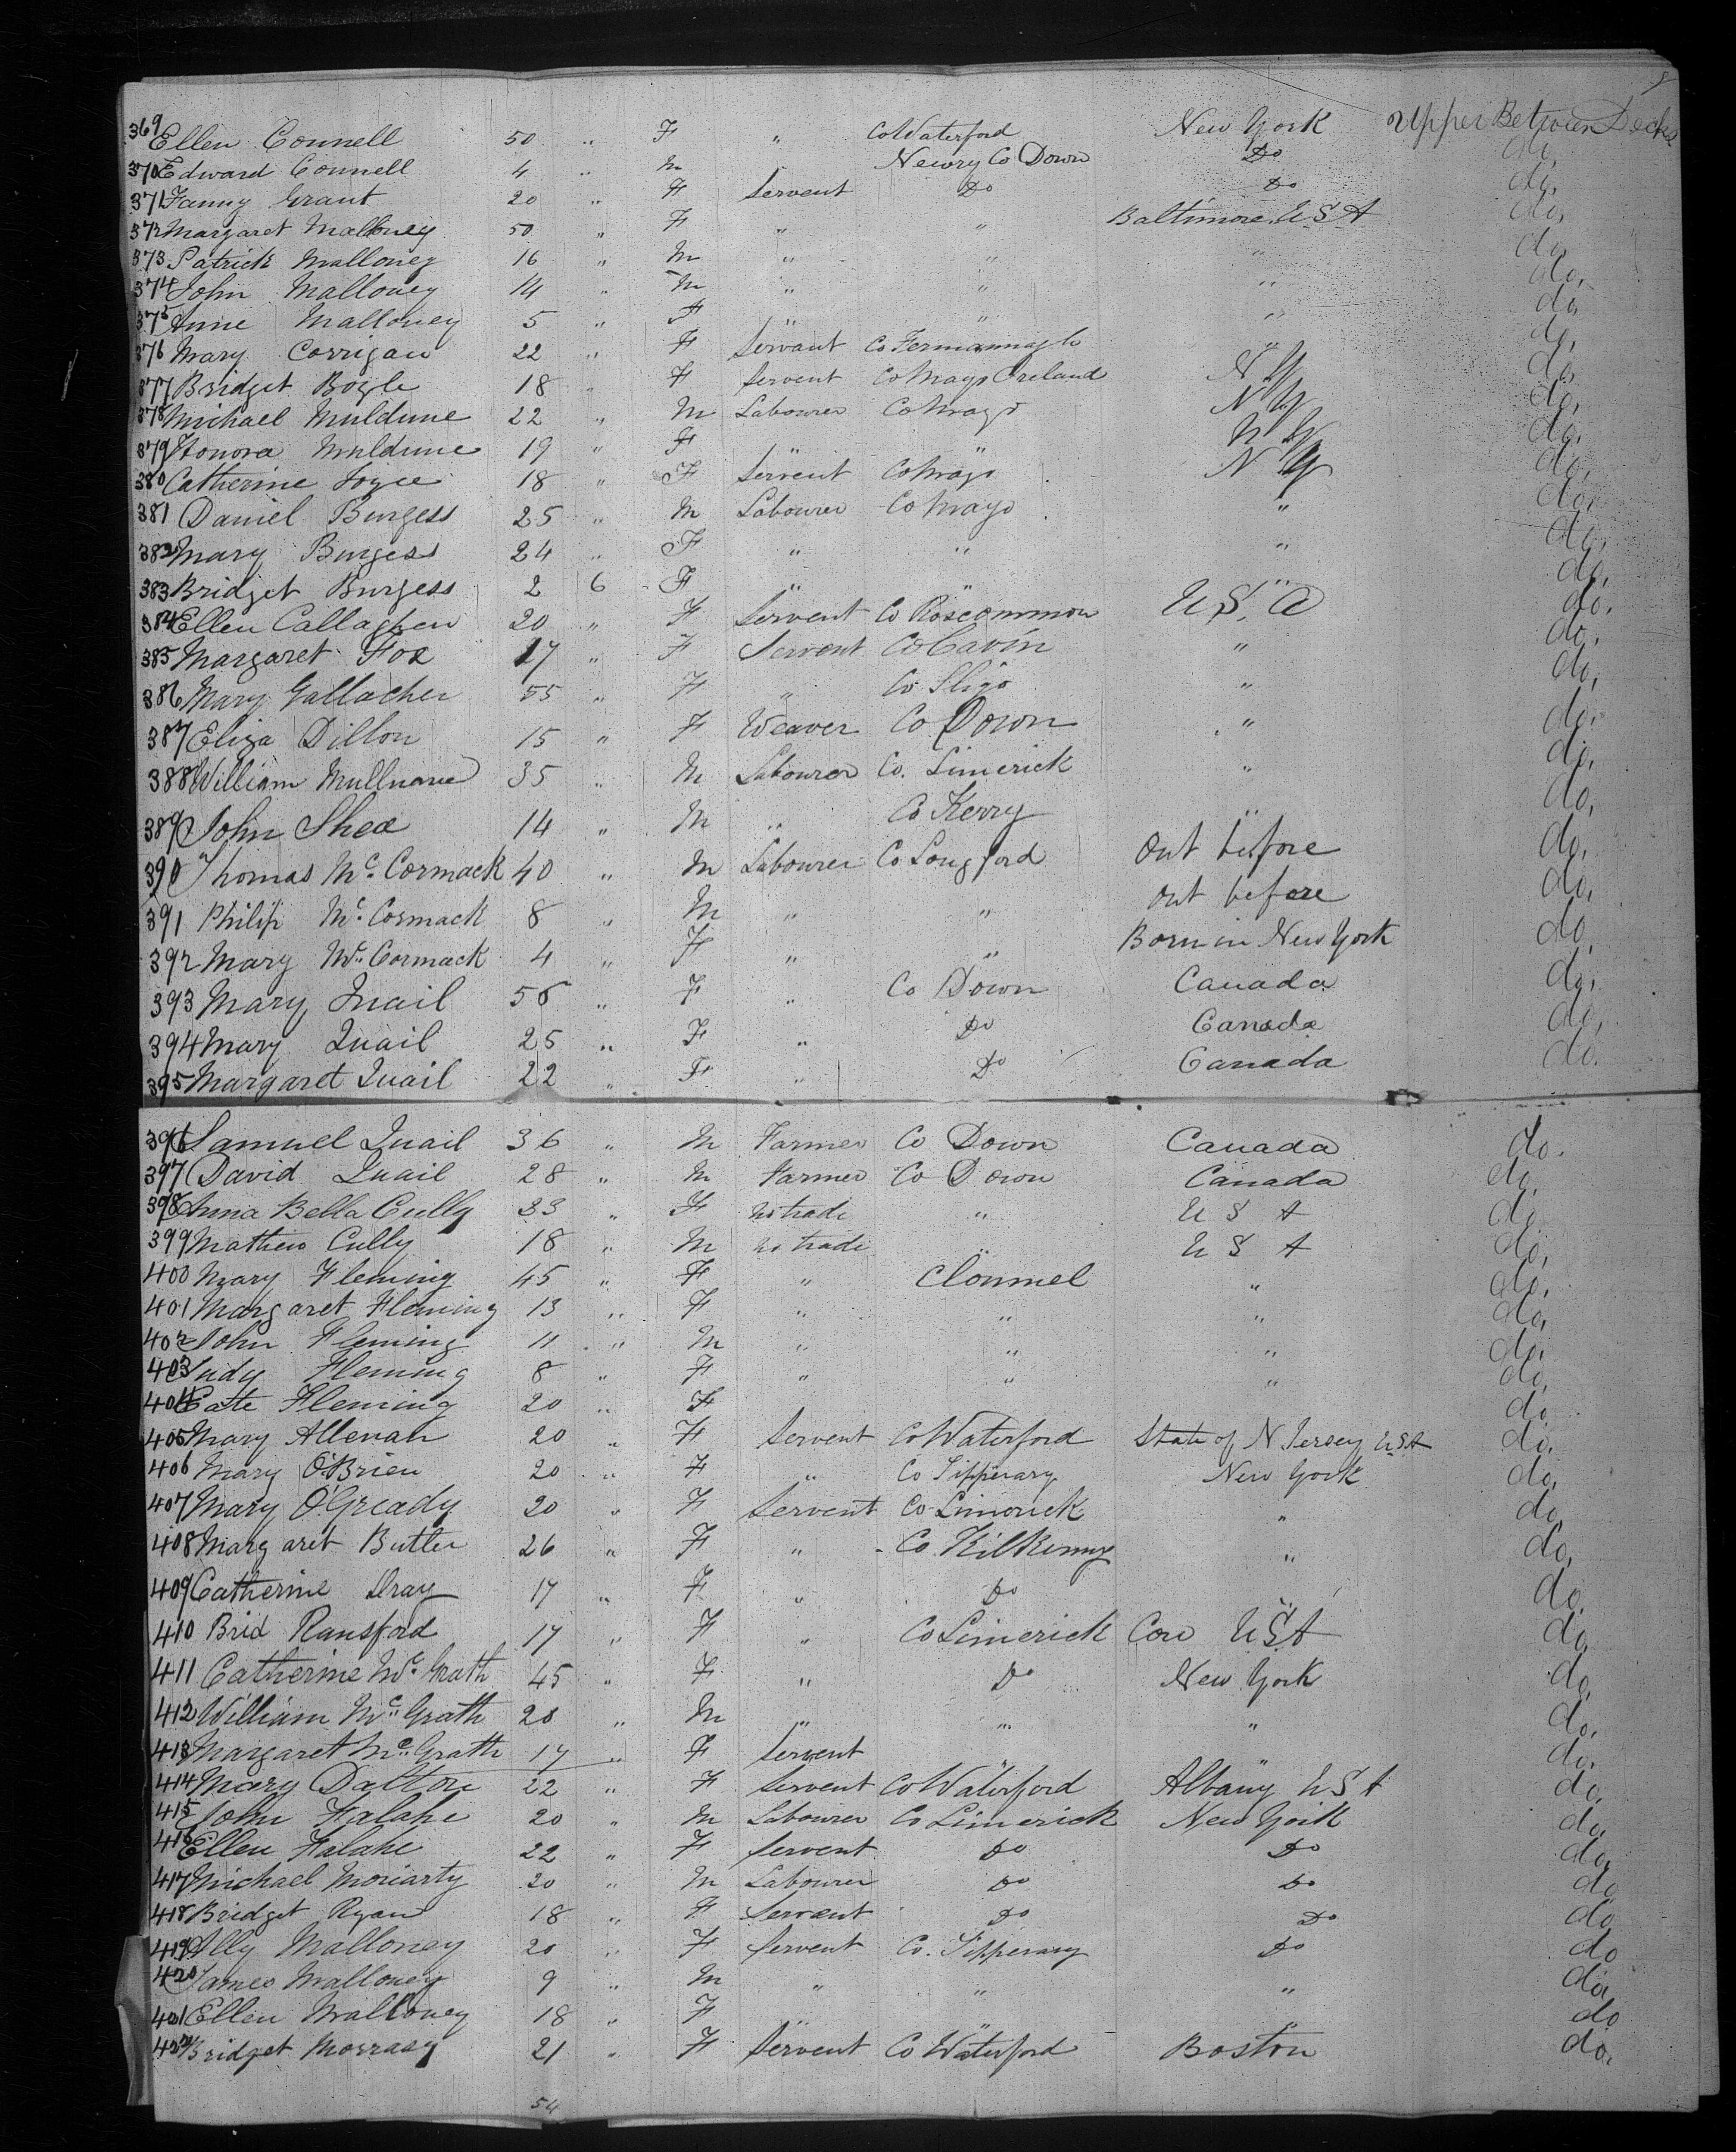 369 Ellen Connell 50 " F " Co Waterford New York Upper Between Decks
370 Edward Connell 4 " M Newry Co Down Do do,
371 Fanny Grant 20 " F Servent Do Do do,
372 Margaret Malloney 50 " F " " Baltimore U S A do,
373 Patrick Malloney 16 " M " " " do,
374 John Malloney 14 " M " " " do,
375 Anne Malloney 5 " F " " " do,
376 Mary Corrigan 22 " F Servant Co Fermannagh " do,
377 Bridget Bogle 18 " F Servent Co Mayo Ireland N Y do,
378 Michael Muldune 22 " M Labourer Co Mayo N Y do,
379 Honora Muldune 19 " F " " N Y do,
380 Catherine Joyce 18 " F Servent Co Mayo N Y do,
381 Daniel Burgess 25 " M Labourer Co Mayo " do,
382 Mary Burgess 24 " F " " " do,
383 Bridget Burgess 2 6 F " " " do,
384 Ellen Callaghen 20 " F Servent Co Roscommon U S. A do.
385 Margaret Fox 27 " F Servent Co Cavin " do.
386 Mary Gallacher 55 " F " Co Sligo " do,
387 Eliza Dillon 15 " F Weaver Co Down " do,
388 William Mullnane 35 " M Labourer Co. Limerick " do,
389 John Shea 14 " M " Co Kerry " do,
390 Thomas Mc Cormack 40 " M Labourer Co Longford Out before do,
391 Philip Mc Cormack 8 " M " " out before do,
392 Mary Mc Cormack 4 " F " " Born in New York do
393 Mary Quail 56 " F " Co Down Canada do,
394 Mary Quail 25 " F " Do Canada do,
395 Margaret Quail 22 " F " Do Canada do.
396 Samuel Quail 36 " M Farmer Co Down Canada do.
397 David Quail 28 " M Farmer Co Down Canada do,
398 Anna Bella Cully 33 " F no trade " U S A do,
399 Mathew Cully 18 " M no trade U S A do,
400 Mary Fleming 45 " F " Clonmel " do,
401 Margaret Fleming 13 " F " " " do,
402 John Fleming 11 " M " " " do,
403 Judy Fleming 8 " F " " " do,
404 Cate Fleming 20 " F do
405 Mary Allenah 20 " F Servent Co Waterford State of N Jersey U.S.A do,
406 Mary O'Brien 20 " F " Co Tipperary New York do,
407 Mary O'Gready 20 " F Servent Co Limerick " do,
408 Margaret Butler 26 " F " Co Kilkenny " do,
409 Catherine Dray 17 " F " Do do
410 Brid Ransford 17 " F " Co Limerick Con U S A do,
411 Catherine Mc Grath 45 " F " Do New York do,
412 William Mc Grath 20 " M " " " do,
413 Margaret Mc Grath 17 " F Servent do,
414 Mary Dalton 22 " F Servent Co Waterford Albany U S A do,
415 John Falahe 20 " M Labourer Co Limerick New York do,
416 Ellen Falahe 22 " F Servent Do Do do,
417 Michael Moriarty 20 " M Labourer Do Do do
418 Bridget Ryan 18 " F Servant Do Do do
419 Ally Malloney 20 " F Servent Co. Tipperary Do do
420 James Malloney 9 " M " " " do,
421 Ellen Malloney 18 " F " " " do
422 Bridget Morrasy 21 " F Servent Co Waterford Boston do.
54